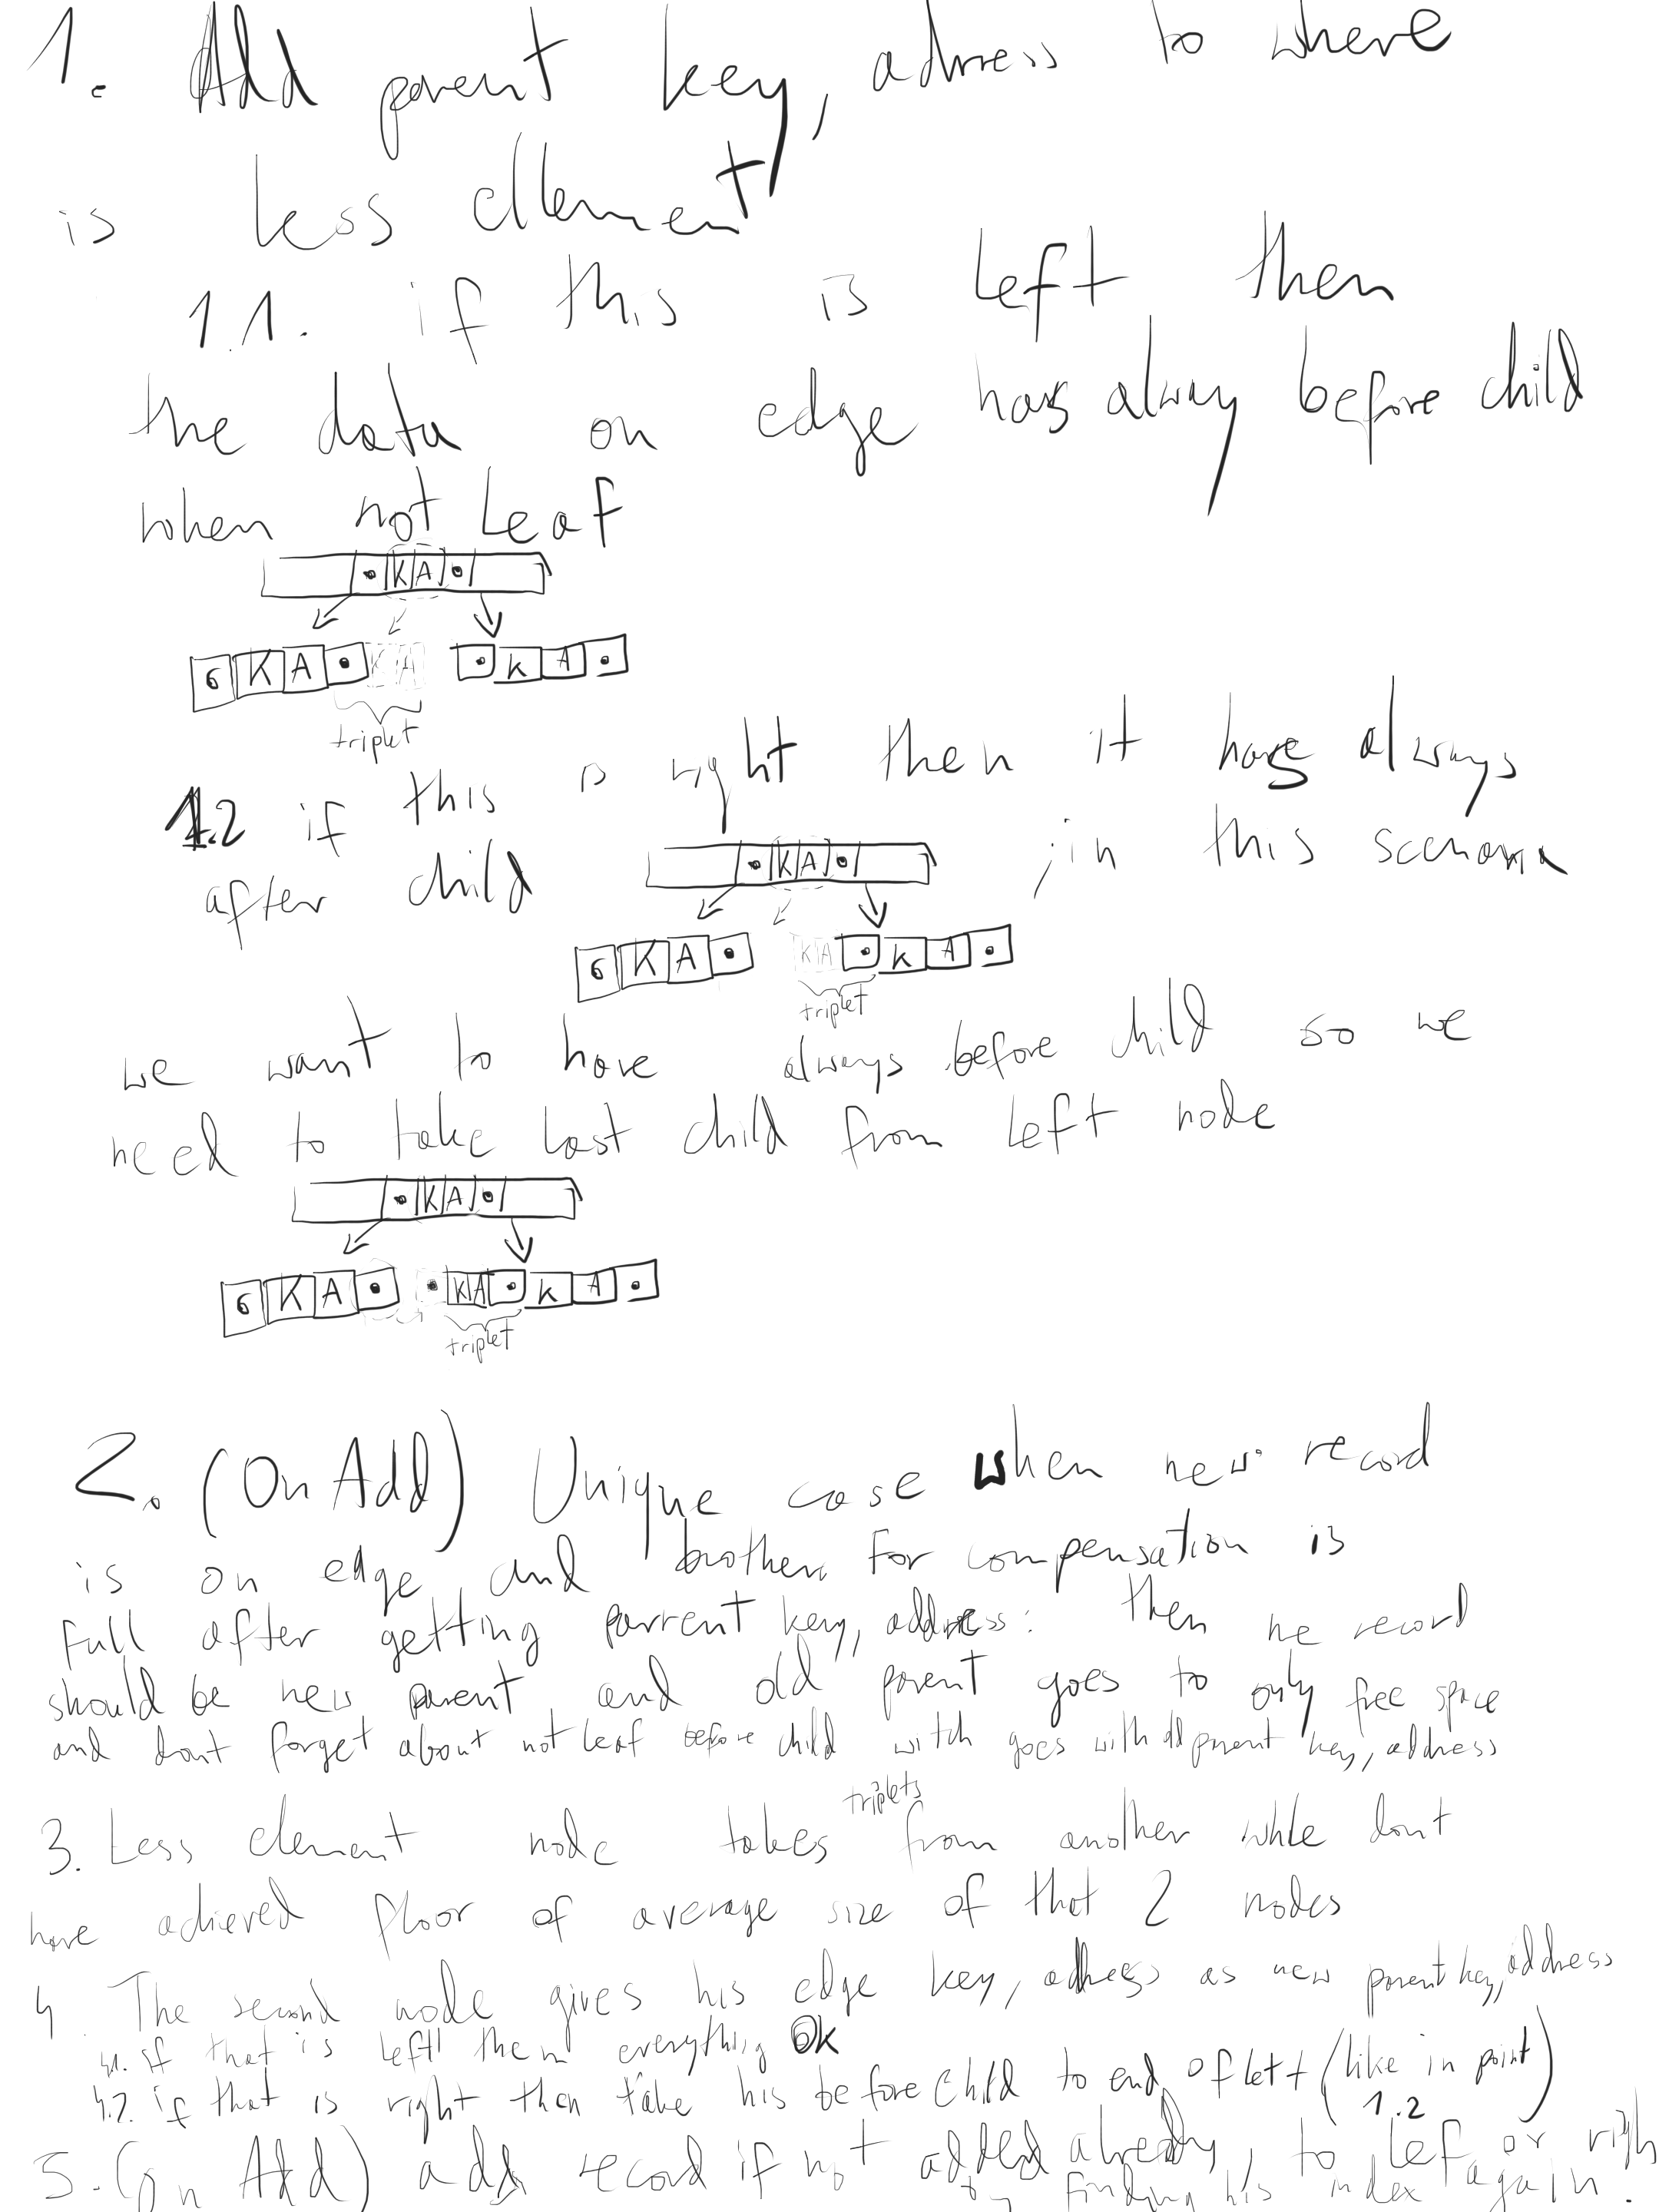 1. Add parent key, adress to where
is less element
1.1. if this is left then
the data on edge has alway before child
when not leaf
• K A •
6 K A • K A • K A •
triplet
1.2 if this is right then it has always
after child ; in this scenario
• K A •
6 K A • K A • K A •
triplet
we want to have always before child so we
need to take last child from left node
• K A •
6 K A • • K A • K A •
triplet
2. (On Add) Unique case when new record
is on edge and brother for compensation is
full after getting parrent key, address: then ne record
should be new parent and old parent goes to only free space
and dont forget about not leaf before child witch goes with old parent key, address
3. Less element node takes triplets from another while dont
have achieved floor of average size of that 2 nodes
4. The second node gives his edge key, address as new parent key, address
4.1. if that is left then everything OK
4.2. if that is right then take his before child to end of left (like in point 1.2)
5. (on Add) adds record if not added already, to lef or righ
by finding his index again.